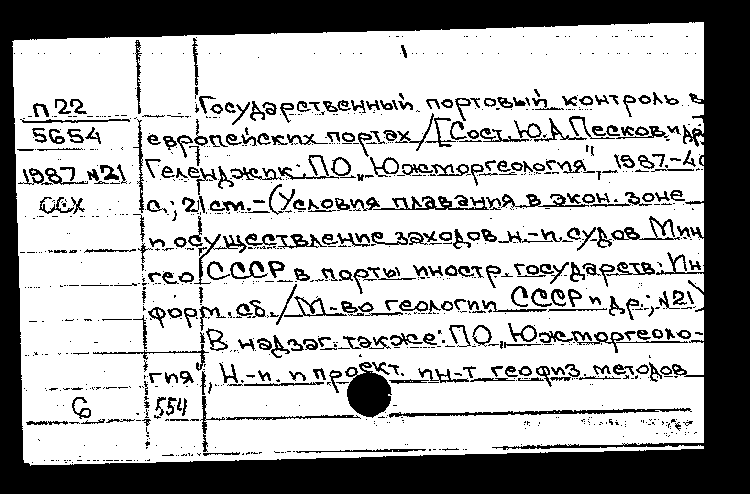 п22
5654
1987 №21
ОСХ
Государственный портовый контроль в
европейских портах / [Сост. Ю.А. Песков и др.]
Геленджик: ПО „Южморгеология", 1987.-40
с.; 21 см.-(Условия плавания в экон. зоне
и осуществление заходов н.-и. судов Мин
гео СССР в порты иностр. государств: Ин
форм. сб. / М-во геологии СССР и др.; №21)
В надзаг. также: ПО „Южморгеоло-
гия", Н.-и. и проект. ин-т геофиз. методов
6 554